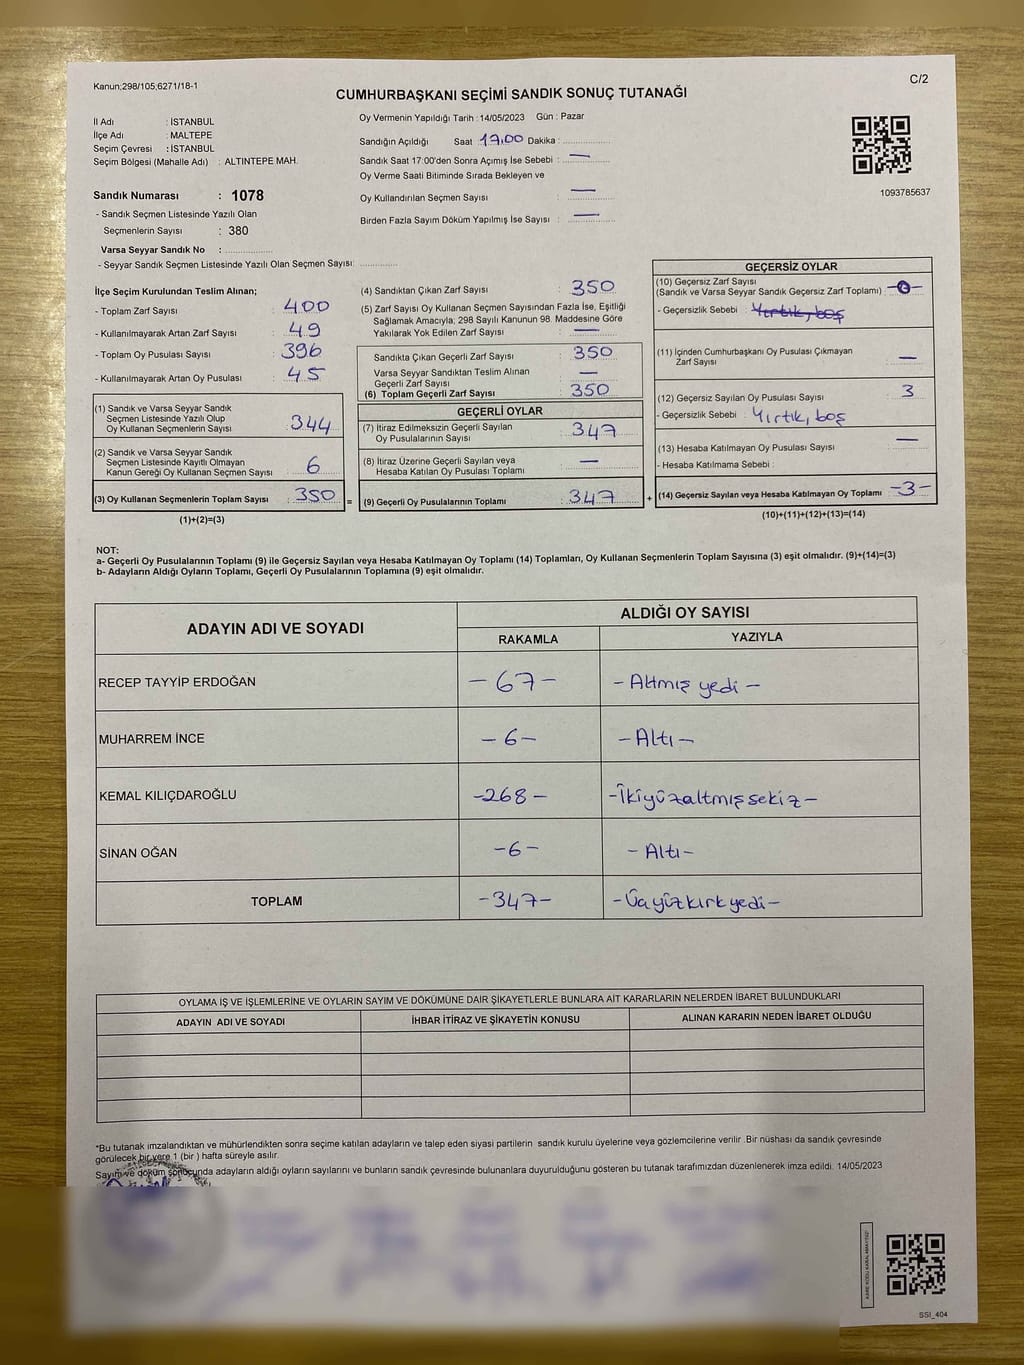 Kanun;298/105;6271/18-1
C/2
CUMHURBAŞKANI SEÇİMİ SANDIK SONUÇ TUTANAĞI
İl Adı : İSTANBUL
İlçe Adı : MALTEPE
Seçim Çevresi : İSTANBUL
Seçim Bölgesi (Mahalle Adı) : ALTINTEPE MAH.
Sandık Numarası : 1078
- Sandık Seçmen Listesinde Yazılı Olan
Seçmenlerin Sayısı : 380
Varsa Seyyar Sandık No :
- Seyyar Sandık Seçmen Listesinde Yazılı Olan Seçmen Sayısı:
Oy Vermenin Yapıldığı Tarih : 14/05/2023 Gün : Pazar
Sandığın Açıldığı Saat 17.00 Dakika :
Sandık Saat 17:00'den Sonra Açımış İse Sebebi : —
Oy Verme Saati Bitiminde Sırada Bekleyen ve
Oy Kullandırılan Seçmen Sayısı : —
Birden Fazla Sayım Döküm Yapılmış İse Sayısı : —
1093785637
İlçe Seçim Kurulundan Teslim Alınan;
- Toplam Zarf Sayısı : 400
- Kullanılmayarak Artan Zarf Sayısı : 49
- Toplam Oy Pusulası Sayısı : 396
- Kullanılmayarak Artan Oy Pusulası : 45
(1) Sandık ve Varsa Seyyar Sandık
Seçmen Listesinde Yazılı Olup
Oy Kullanan Seçmenlerin Sayısı : 344
(2) Sandık ve Varsa Seyyar Sandık
Seçmen Listesinde Kayıtlı Olmayan
Kanun Gereği Oy Kullanan Seçmen Sayısı : 6
(3) Oy Kullanan Seçmenlerin Toplam Sayısı : 350
(1)+(2)=(3)
=
(4) Sandıktan Çıkan Zarf Sayısı : 350
(5) Zarf Sayısı Oy Kullanan Seçmen Sayısından Fazla İse, Eşitliği
Sağlamak Amacıyla; 298 Sayılı Kanunun 98. Maddesine Göre
Yakılarak Yok Edilen Zarf Sayısı : —
Sandıkta Çıkan Geçerli Zarf Sayısı : 350
Varsa Seyyar Sandıktan Teslim Alınan
Geçerli Zarf Sayısı : —
(6) Toplam Geçerli Zarf Sayısı : 350
GEÇERLİ OYLAR
(7) İtiraz Edilmeksizin Geçerli Sayılan
Oy Pusulalarının Sayısı : 347
(8) İtiraz Üzerine Geçerli Sayılan veya
Hesaba Katılan Oy Pusulası Toplamı : —
(9) Geçerli Oy Pusulalarının Toplamı : 347
+
GEÇERSİZ OYLAR
(10) Geçersiz Zarf Sayısı
(Sandık ve Varsa Seyyar Sandık Geçersiz Zarf Toplamı) :
- Geçersizlik Sebebi : Yırtık, boş
(11) İçinden Cumhurbaşkanı Oy Pusulası Çıkmayan
Zarf Sayısı : —
(12) Geçersiz Sayılan Oy Pusulası Sayısı : 3
- Geçersizlik Sebebi : Yırtık, boş
(13) Hesaba Katılmayan Oy Pusulası Sayısı : —
- Hesaba Katılmama Sebebi :
(14) Geçersiz Sayılan veya Hesaba Katılmayan Oy Toplamı : -3-
(10)+(11)+(12)+(13)=(14)
NOT:
a- Geçerli Oy Pusulalarının Toplamı (9) ile Geçersiz Sayılan veya Hesaba Katılmayan Oy Toplamı (14) Toplamları, Oy Kullanan Seçmenlerin Toplam Sayısına (3) eşit olmalıdır. (9)+(14)=(3)
b- Adayların Aldığı Oyların Toplamı, Geçerli Oy Pusulalarının Toplamına (9) eşit olmalıdır.
ADAYIN ADI VE SOYADI
ALDIĞI OY SAYISI
RAKAMLA YAZIYLA
RECEP TAYYİP ERDOĞAN -67- -Altmış yedi-
MUHARREM İNCE -6- -Altı-
KEMAL KILIÇDAROĞLU -268- -İkiyüzaltmışsekiz-
SİNAN OĞAN -6- -Altı-
TOPLAM -347- -Üçyüzkırkyedi-
OYLAMA İŞ VE İŞLEMLERİNE VE OYLARIN SAYIM VE DÖKÜMÜNE DAİR ŞİKAYETLERLE BUNLARA AİT KARARLARIN NELERDEN İBARET BULUNDUKLARI
ADAYIN ADI VE SOYADI İHBAR İTİRAZ VE ŞİKAYETİN KONUSU ALINAN KARARIN NEDEN İBARET OLDUĞU
*Bu tutanak imzalandıktan ve mühürlendikten sonra seçime katılan adayların ve talep eden siyasi partilerin sandık kurulu üyelerine veya gözlemcilerine verilir. Bir nüshası da sandık çevresinde
görülecek bir yere 1 (bir) hafta süreyle asılır.
Sayım ve döküm sonucunda adayların aldığı oyların sayılarını ve bunların sandık çevresinde bulunanlara duyurulduğunu gösteren bu tutanak tarafımızdan düzenlenerek imza edildi. 14/05/2023
KARE KODU KARALAMAYINIZ!
SSI_404